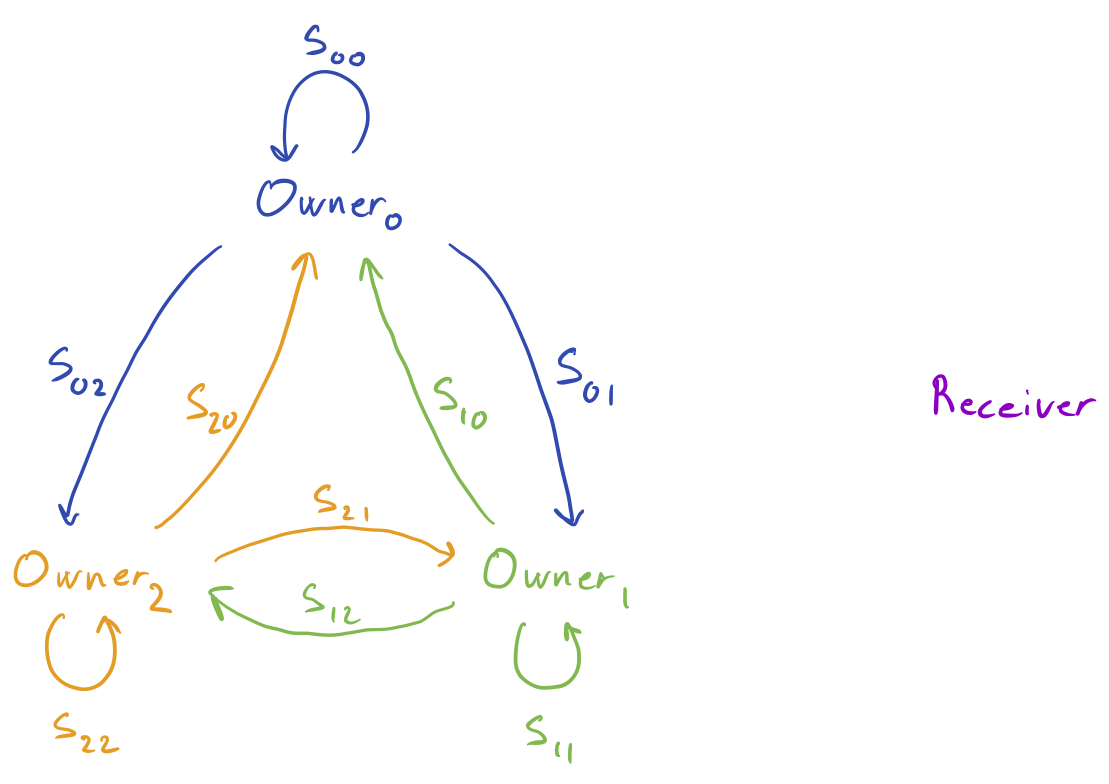 S₀₀
Owner₀
S₀₂
S₂₀
S₁₀
S₀₁
Receiver
S₂₁
Owner₂
Owner₁
S₁₂
S₂₂
S₁₁